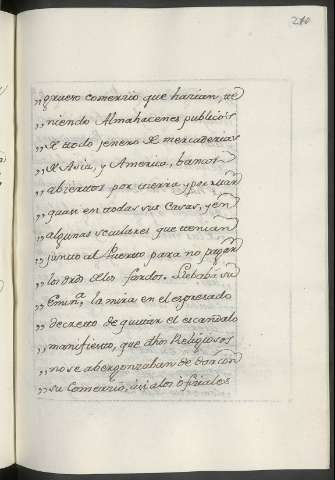 210
„ grueso comercio que hazian, te
„ niendo Almahacenes publicos
„ de todo jenero de mercaderias
„ de Asia, y America, bancos
„ abiertos por tierra y por mar
„ quasi en todas sus Casas, y en
„ algunas seculares que tenian
„ junto al Puerto para no pagar
„ los dros de los fardos. Llebaba su
„ Emin.ª la mira en el espresado
„ decreto de quitar el escandalo
„ manifiesto, que dhos Religiosos
„ no se abergonzaban de dar con
„ su Comerzio, asi a los oficiales